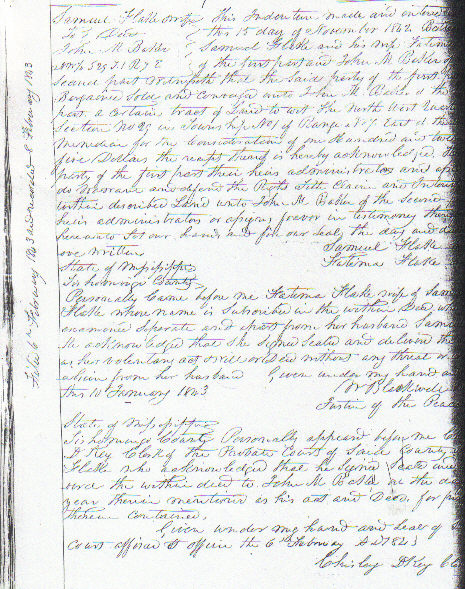 Samuel Flake & wife This Indenture made and entered
To } Deed this 15 day of November 1842 Betw
John M Baker Samuel Flake and his wife Fatima
of the first part and John M Baker of
second part Witnesseth that the said party of the first p
Bargained Sold and conveyed unto John M Baker of the
part a certain tract of Land to wit The North West Quar
Section No 25 in Township No of Range No 7 East of th
Meridian for the consideration of one Hundred and twe
five Dollars the receipt thereof is hereby acknowledged. th
party of the first part their heirs administrators and
do Warrant and defend the Right Title Claim and Interes
within described Land unto John M Baker of the Secon
heirs administrators or assigns forever in testimony there
hereunto set our hands and seals the day and da
ove written
Samuel Flake
Fatima Flake
State of Mississippi
Tishomingo County
Personally Came before me Fatima Flake wife of Sam
Flake whose name is Subscribed in the within Deed wh
examined Seperate and apart from her husband Samu
she acknowledged that she signed sealed and deliverd the
as her voluntary act & will and did without any threat or
from her husband Given under my hand a
this 10 January 1843
W Blackwell
Justice of the Peac
State of Mississippi
Tishomingo County Personally appeard before me
D Key Clerk of the Probate Court of Said County
Flake who acknowledged that he signed Sealed and
the within deed to John M Baker on the da
year therein mentioned as his act and Deed for
therein contained.
Given under my hand and seal of S
Court affixed at office the 6th February A D 1843
Chisley D Key Cle
Filed 6th February 1843 and recorded 8 February 1843